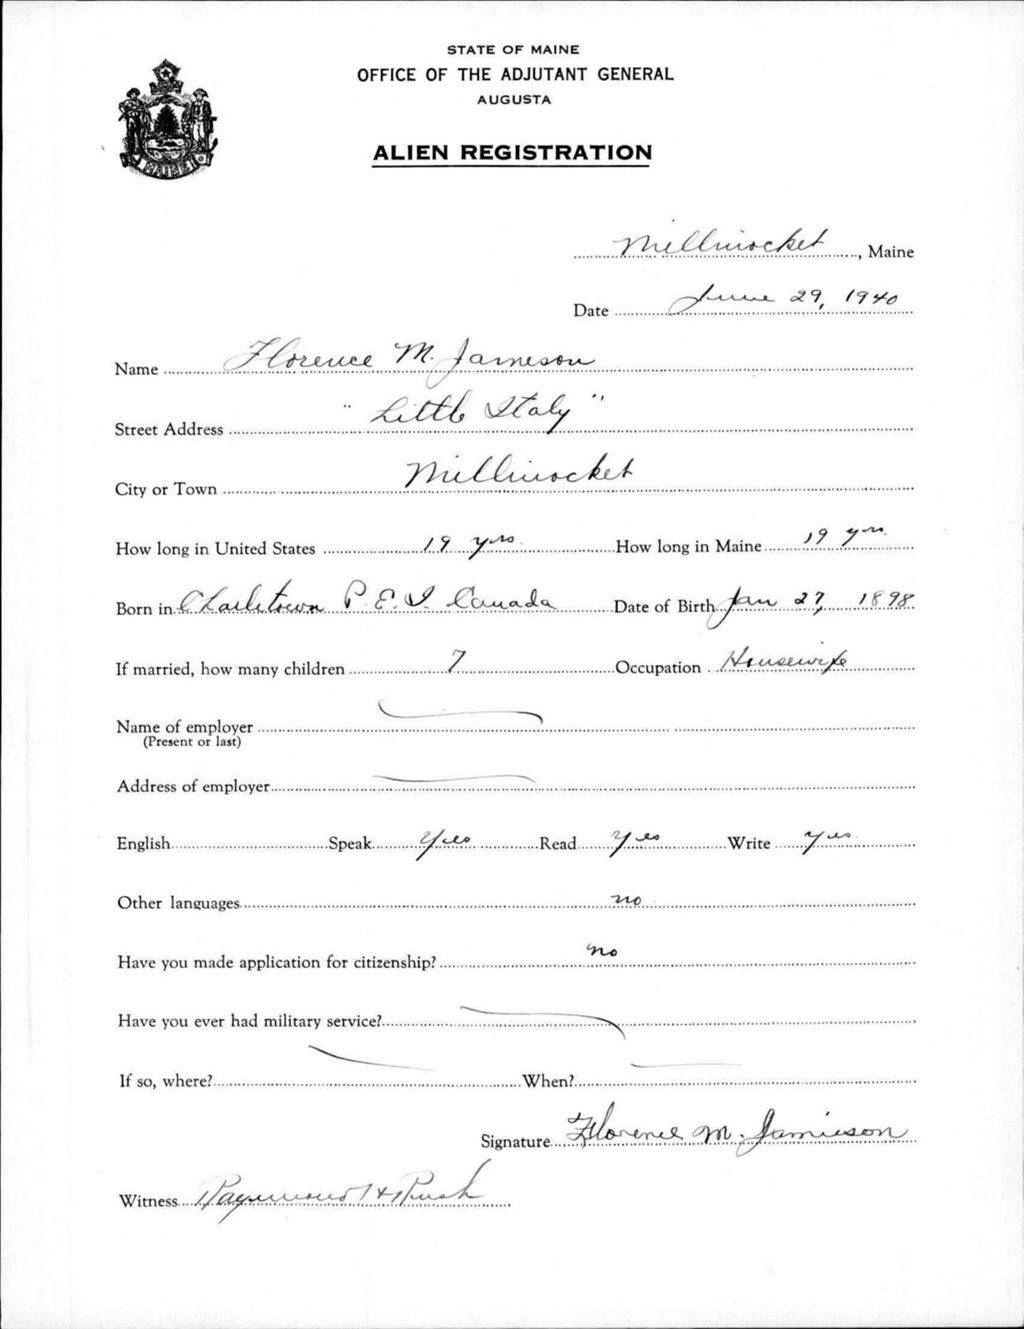 STATE OF MAINE
OFFICE OF THE ADJUTANT GENERAL
AUGUSTA
ALIEN REGISTRATION
MAINE
Millinocket, Maine
Date June 29, 1940
Name Florence M. Jameson
Street Address "Little Italy"
City or Town Millinocket
How long in United States 19 yrs How long in Maine 19 yrs
Born in Charletown P. E. I. Canada Date of Birth Jan 27, 1898
If married, how many children 7 Occupation Housewife
Name of employer
(Present or last)
Address of employer
English Speak Yes Read Yes Write Yes
Other languages no
Have you made application for citizenship? no
Have you ever had military service?
If so, where? When?
Signature Florence M. Jamieson
Witness Raymond H Rush